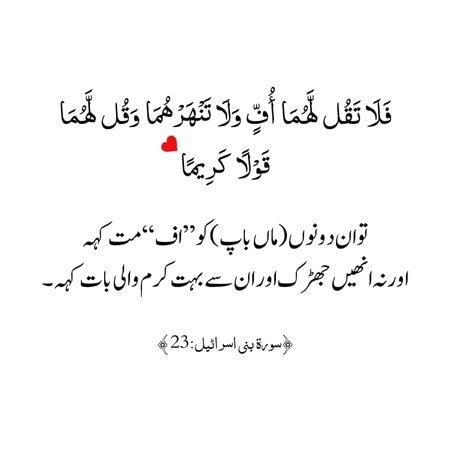 فَلَا تَقُل لَّهُمَا أُفٍّ وَلَا تَنْهَرْهُمَا وَقُل لَّهُمَا
قَوْلًا كَرِيمًا
تو ان دونوں (ماں باپ) کو ”اف“ مت کہہ
اور نہ انھیں جھڑک اور ان سے بہت کرم والی بات کہہ۔
﴿سورۃ بنی اسرائیل:23﴾